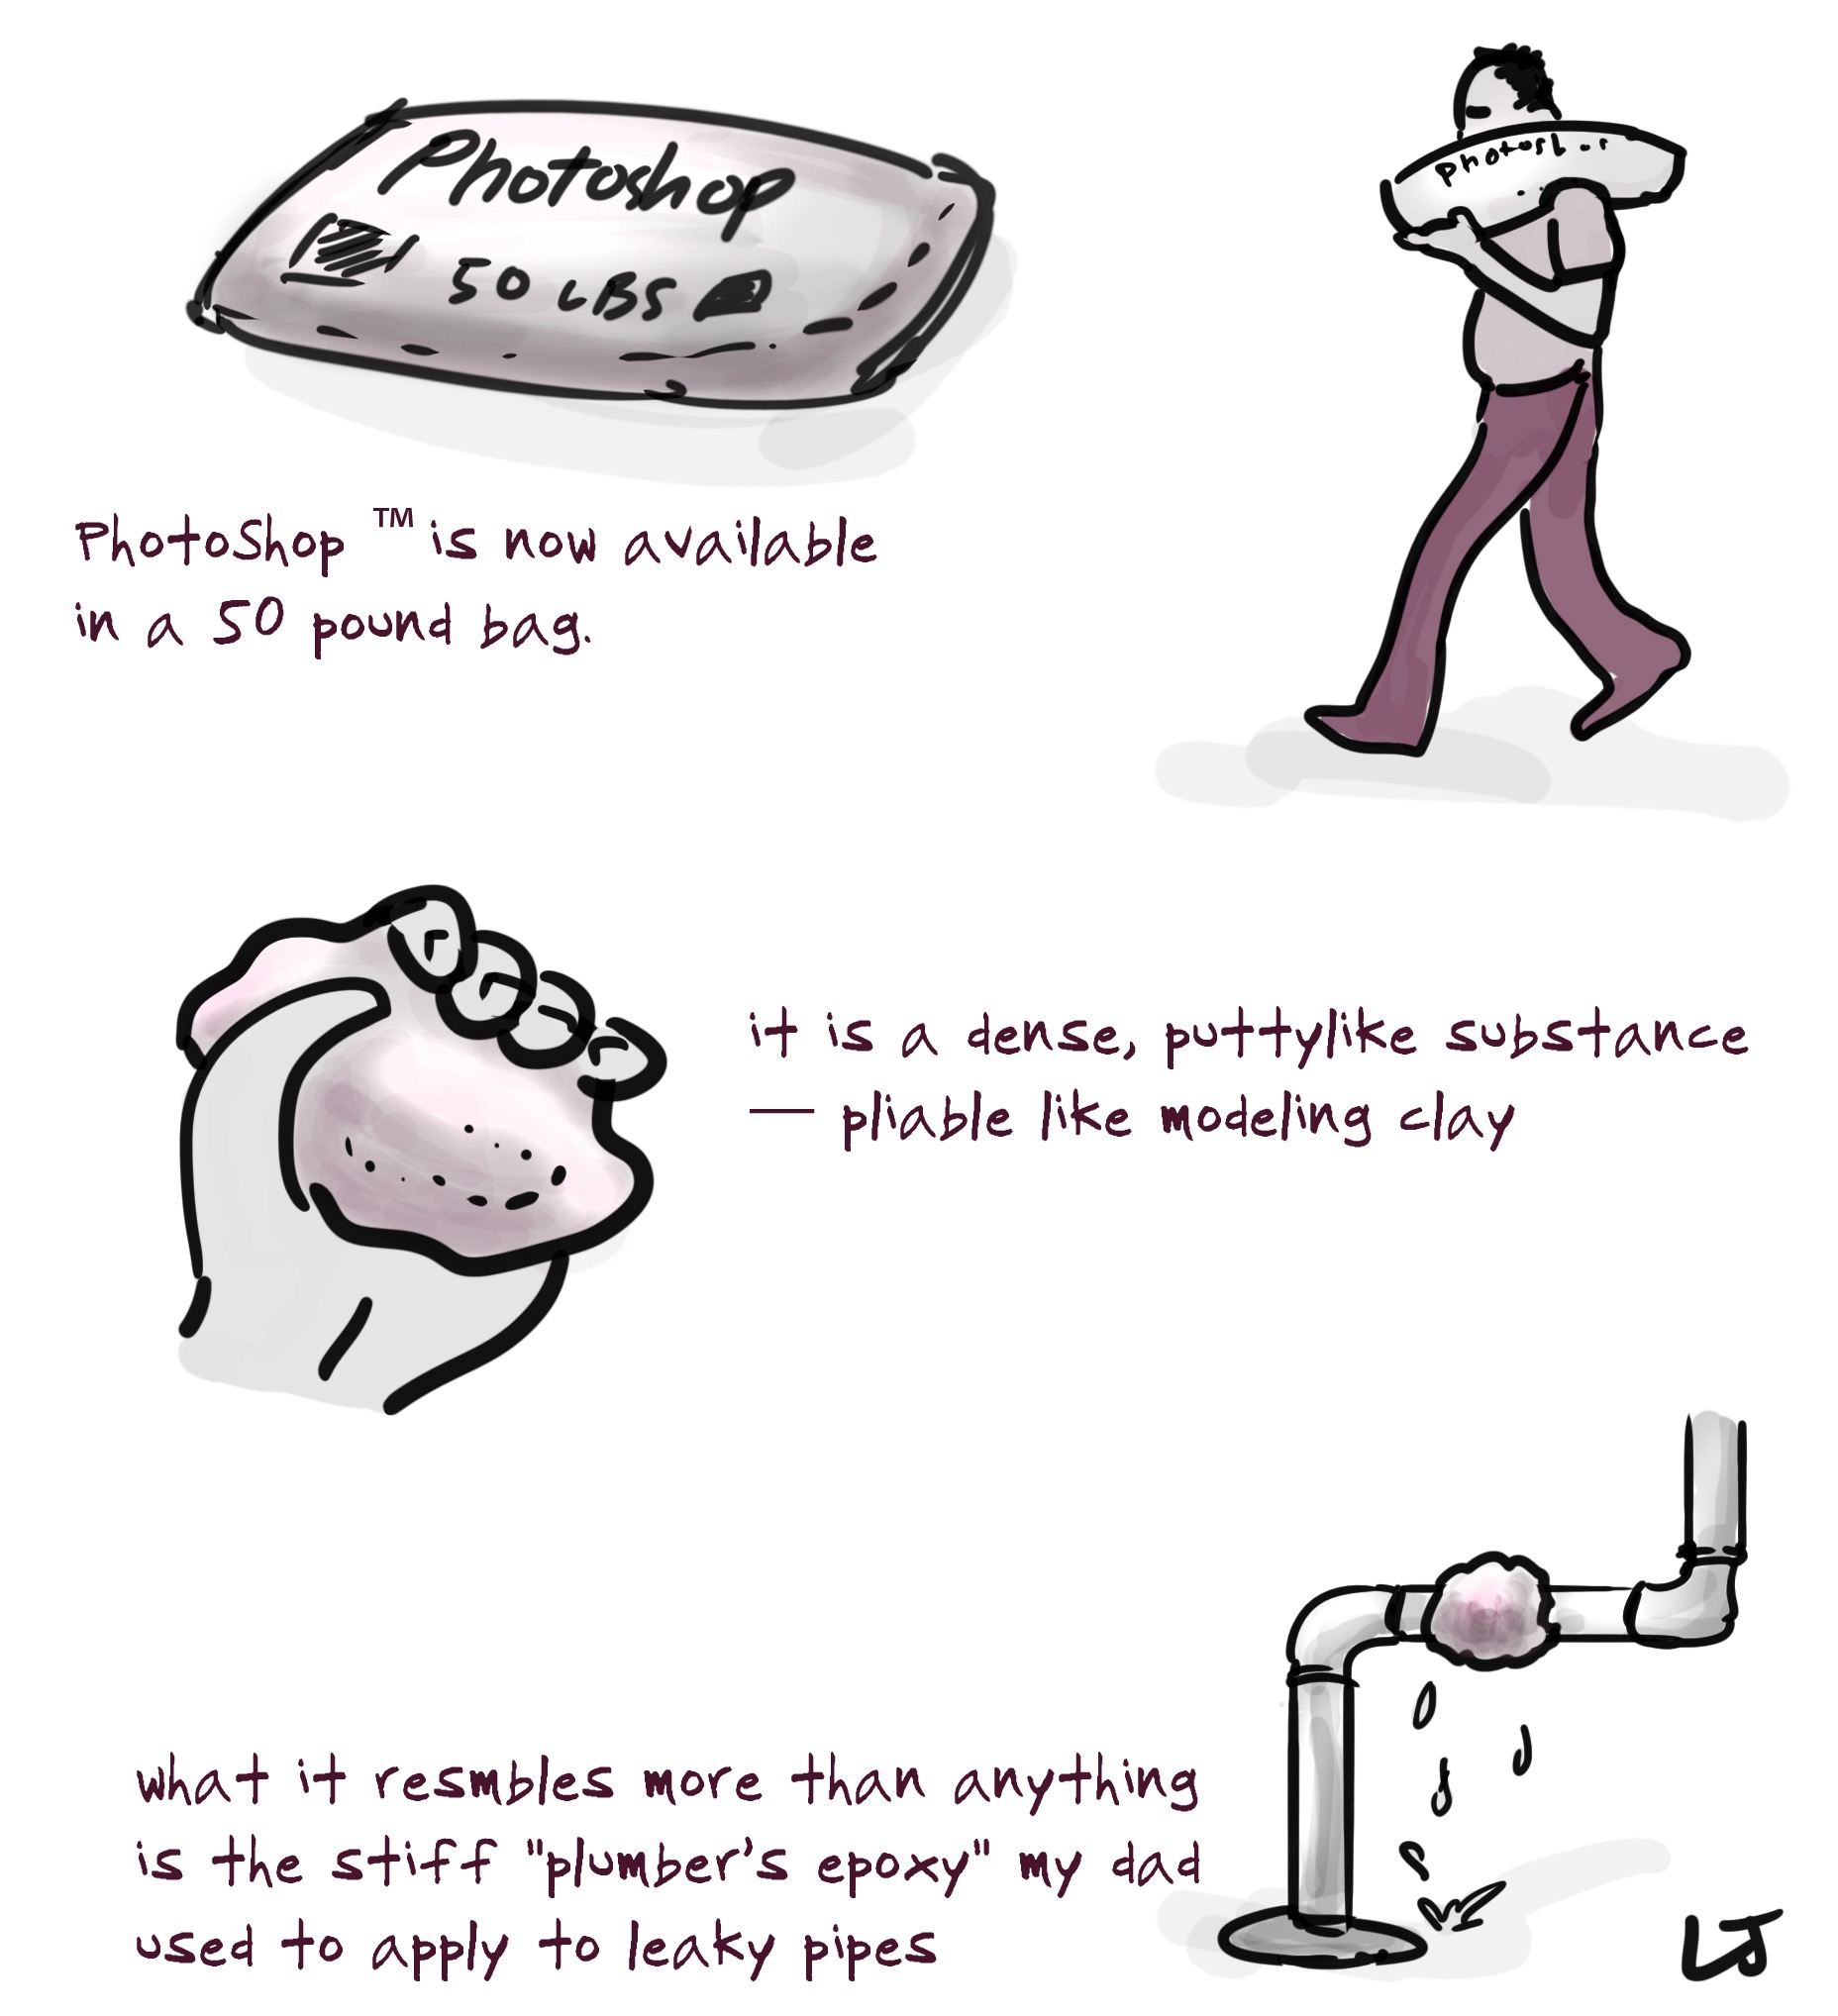 Photoshop
50 LBS
Photosh
PhotoShop ™ is now available
in a 50 pound bag.
it is a dense, puttylike substance
— pliable like modeling clay
what it resmbles more than anything
is the stiff "plumber's epoxy" my dad
used to apply to leaky pipes
LJ